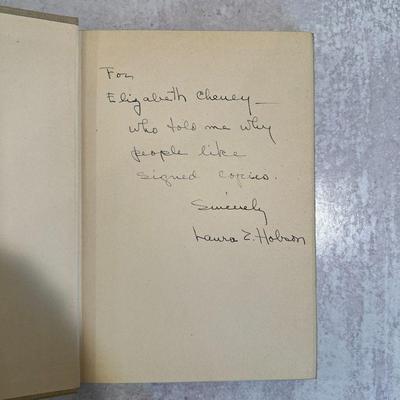 For
Elizabeth Cheney —
who told me why
people like
signed copies.
Sincerely
Laura Z. Hobson